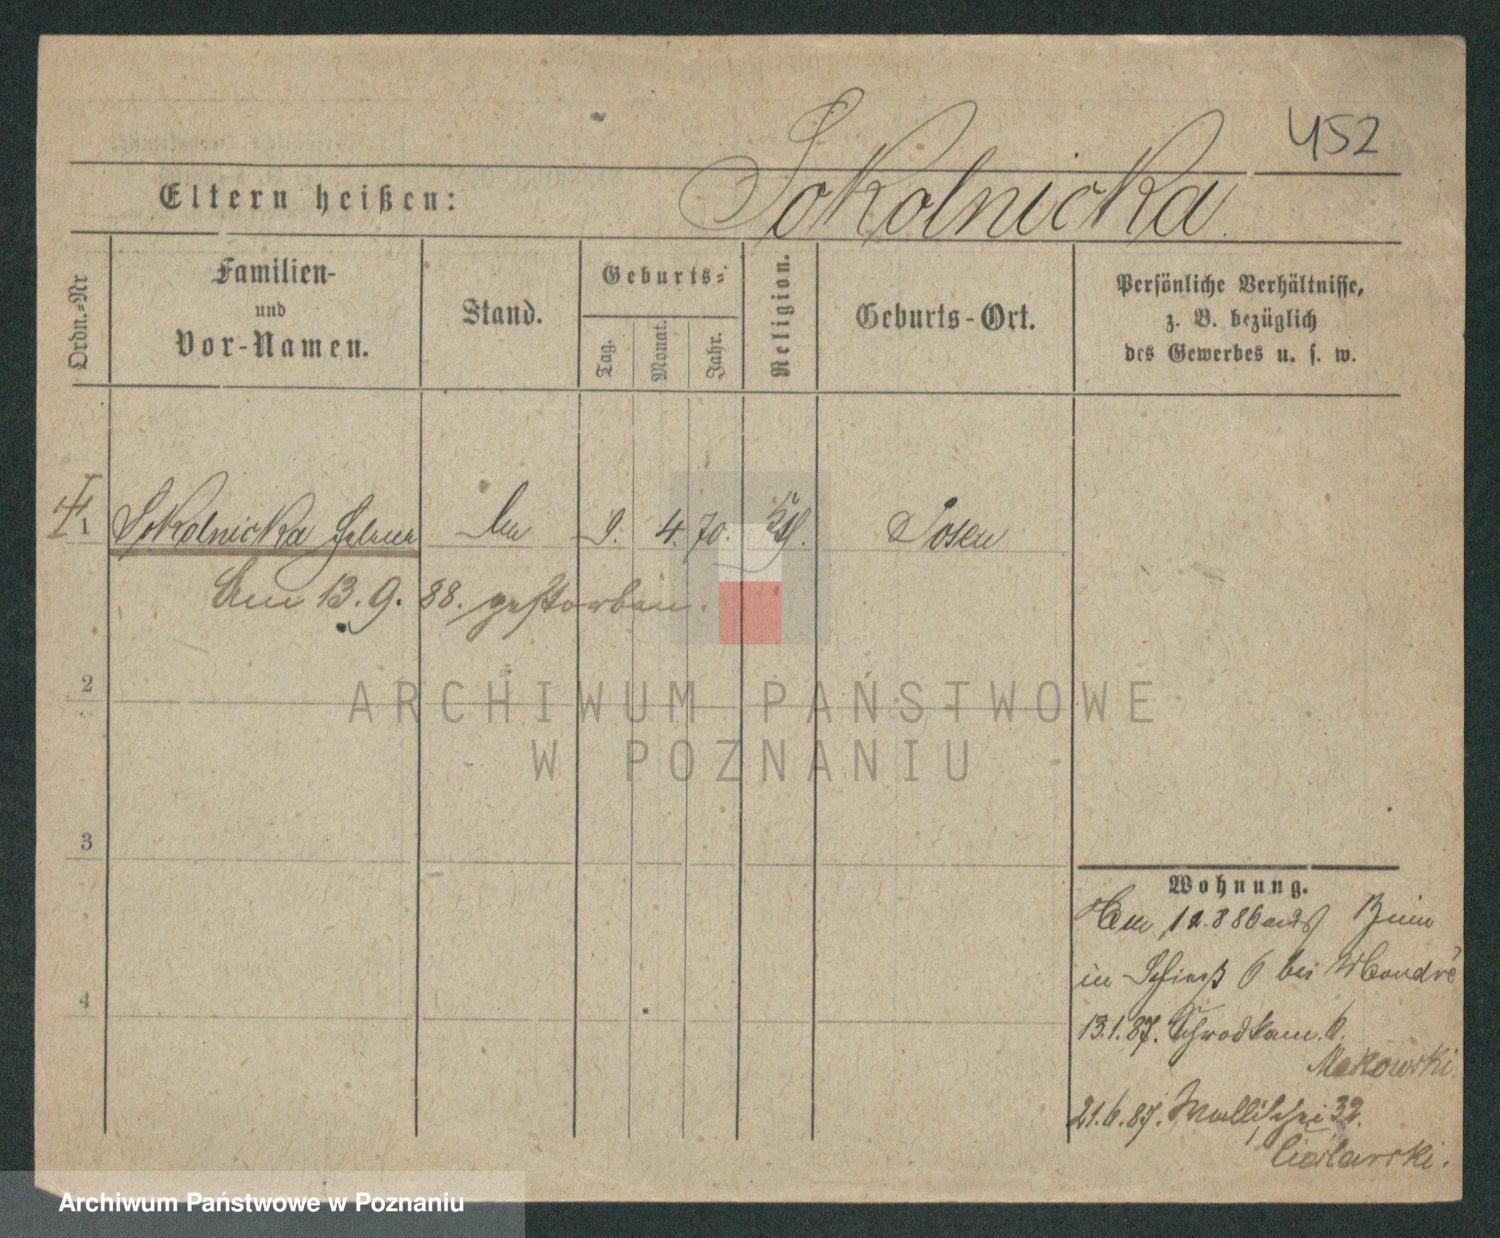 452
Eltern heißen: Sokolnicka.
Ordn.-Nr
Familien-
und
Vor-Namen.
Stand.
Geburts-
Tag.
Monat.
Jahr.
Religion.
Geburts-Ort.
Persönliche Verhältnisse,
z. B. bezüglich
des Gewerbes u. s. w.
1 Sokolnicka Helena 9. 4. 70. Posen
Am 13. 9. 88. gestorben.
2
3
4
ARCHIWUM PAŃSTWOWE
W POZNANIU
Wohnung.
in 6 bei
13.1.87. Schrodkam. 6.
Makowski.
21.6.87. Wallischei 32.
Cieslarski.
Archiwum Państwowe w Poznaniu